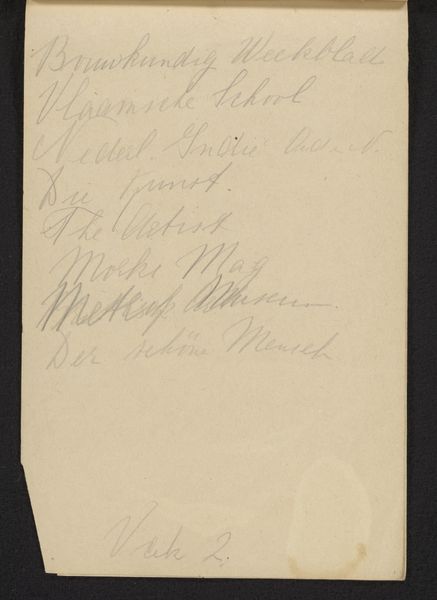 Bouwkundig Weekblad
Vlaamsche School
Nederl. Indië Oud & N.
Die Kunst.
The Artist
Morks Mag
Museum
Der schöne Mensch
Vak 2.